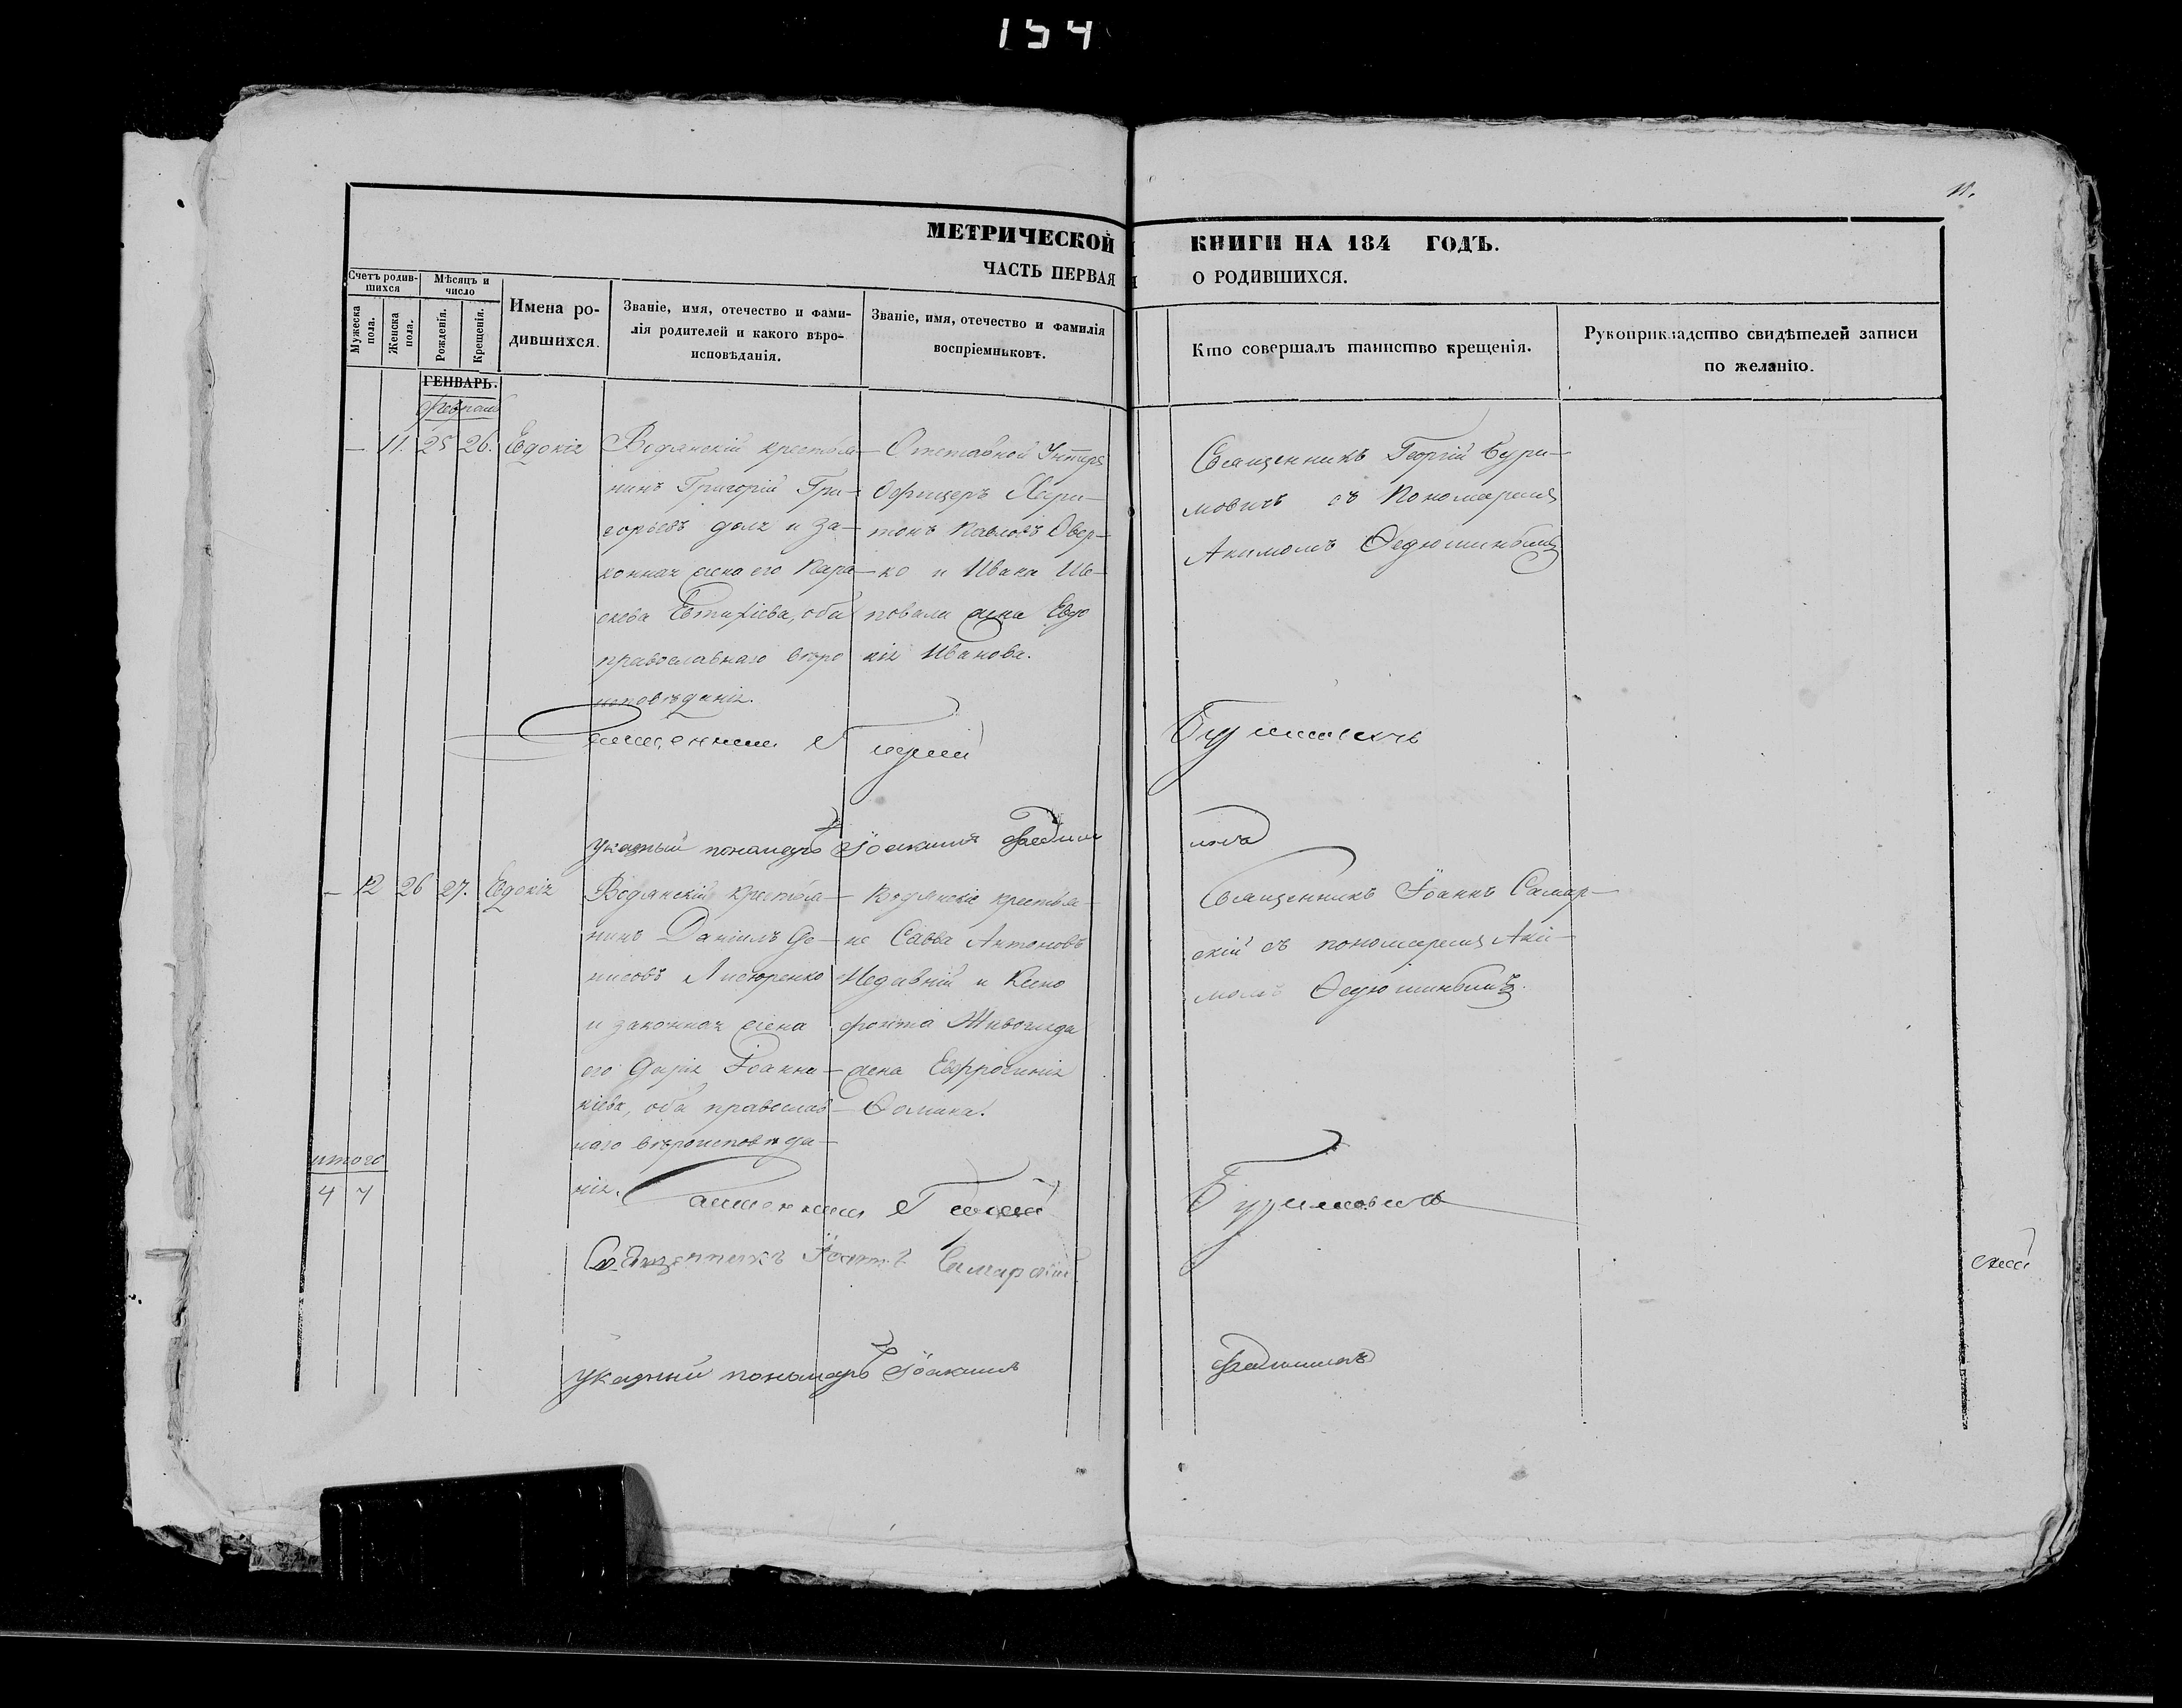 154
11.
МЕТРИЧЕСКОЙ КНИГИ НА 184 ГОДЪ.
ЧАСТЬ ПЕРВАЯ О РОДИВШИХСЯ.
Счетъ родив-
шихся
Мужеска
пола.
Женска
пола.
Мѣсяцъ и
число
Рожденія.
Крещенія.
Имена ро-
дившихся.
Званіе, имя, отечество и фами-
лія родителей и какого вѣро-
исповѣданія.
Званіе, имя, отечество и фамилія
воспріемниковъ.
Кто совершалъ таинство крещенія.
Рукоприкладство свидѣтелей записи
по желанію.
ГЕНВАРЬ.
Февраль
— 11. 25 26. Евдокія
Водянскій крестья-
нинъ Григорій Гри-
горьевъ и за-
конная жена его Пара-
скева Евтихіева, оба
православнаго вѣро
исповѣданія.
Отставной Унтеръ
Офицеръ Хари-
тонъ Павловъ Овер-
ко и Ивана Ше-
повала жена Евдо
кія Иванова.
Священникъ Георгій Бури-
мовичъ съ Пономаремъ
Акимомъ Ѳедюшинымъ
Священникъ Георгій Буримовичъ
указный пономарь Іоакимъ
— 12 26 27. Евдокія
Водянскій крестья-
нинъ Даніилъ Де-
нисовъ Лисюренко
и законная жена
его Дарія Іоанни-
кіева, оба православ-
наго вѣроисповѣда-
нія.
Водянскіе крестья-
не Савва Антоновъ
Недавній и Ксено
фонта Живогляда
жена Евфросинія
Ѳомина.
Священникъ Іоаннъ Самар-
скій съ пономаремъ Аки-
момъ Ѳедюшинымъ.
итого
4 7
Священникъ Георгій Буримовичъ
Священникъ Іоаннъ Самарскій
указный пономарь Іоакимъ